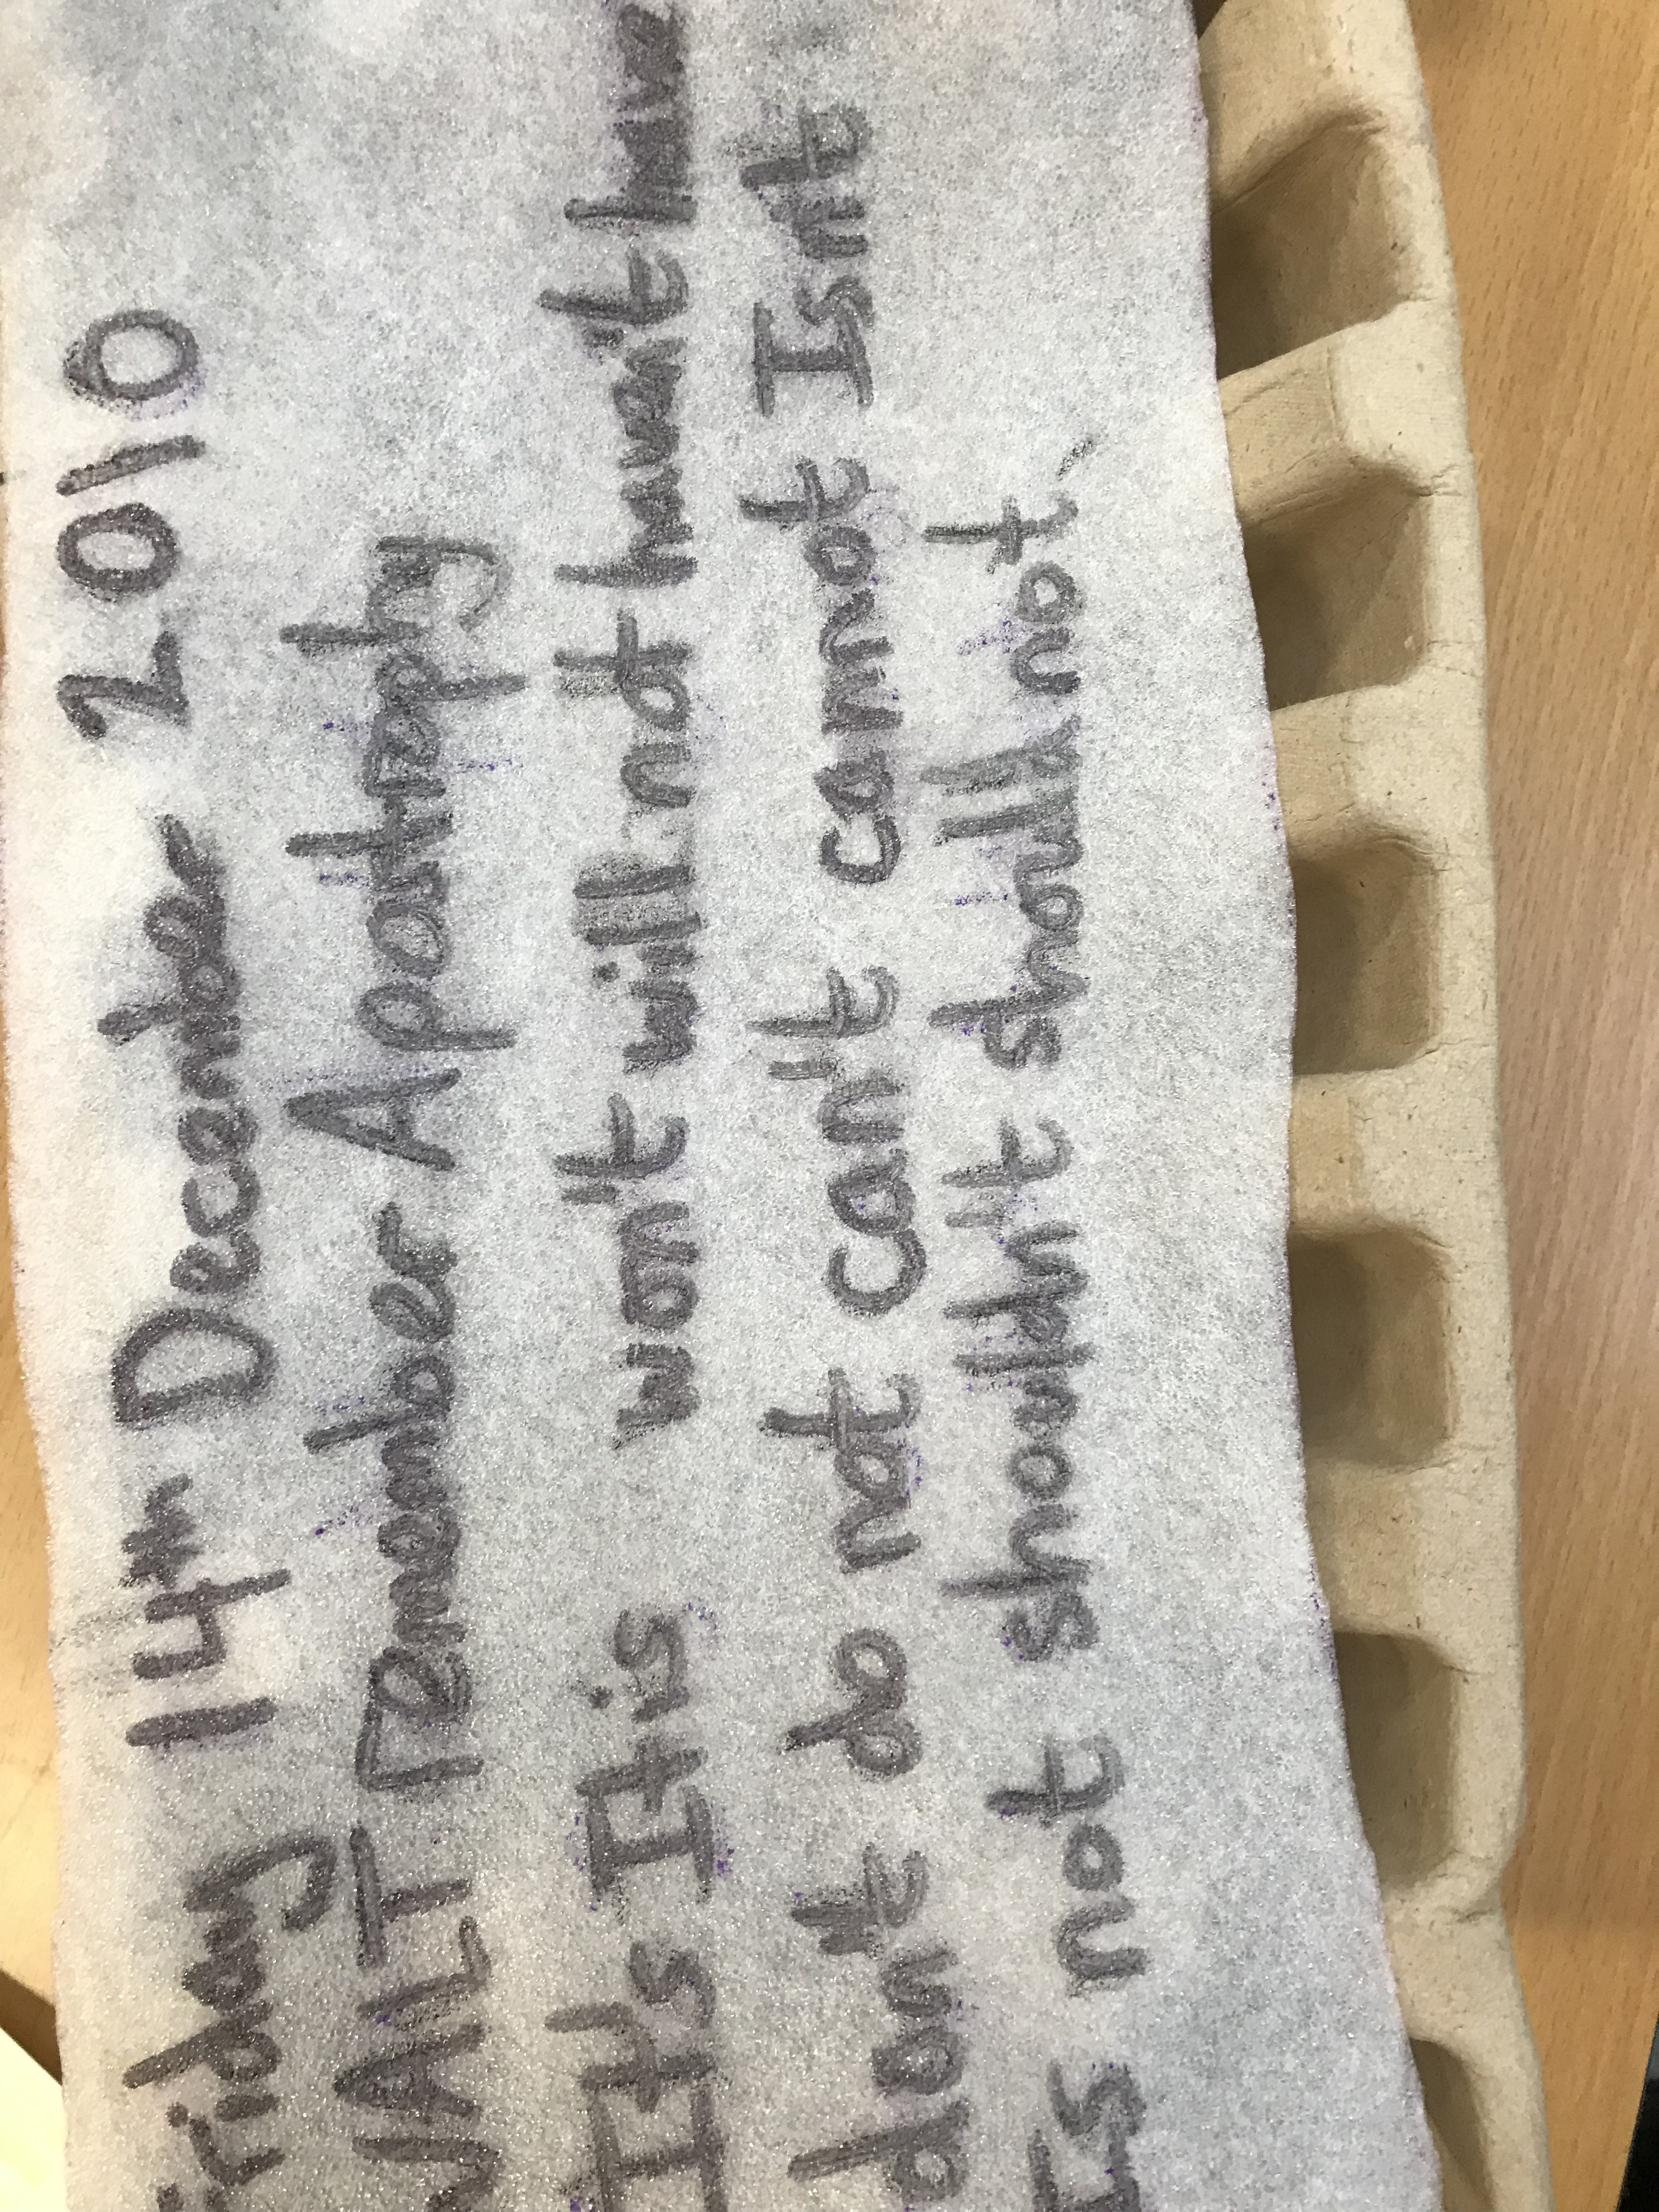 Friday 14th December 2010
WALT remember Apostraphy
It's It is won't will not havn't have
don't do not can't cannot Isn't
Is not shouldn't shall not